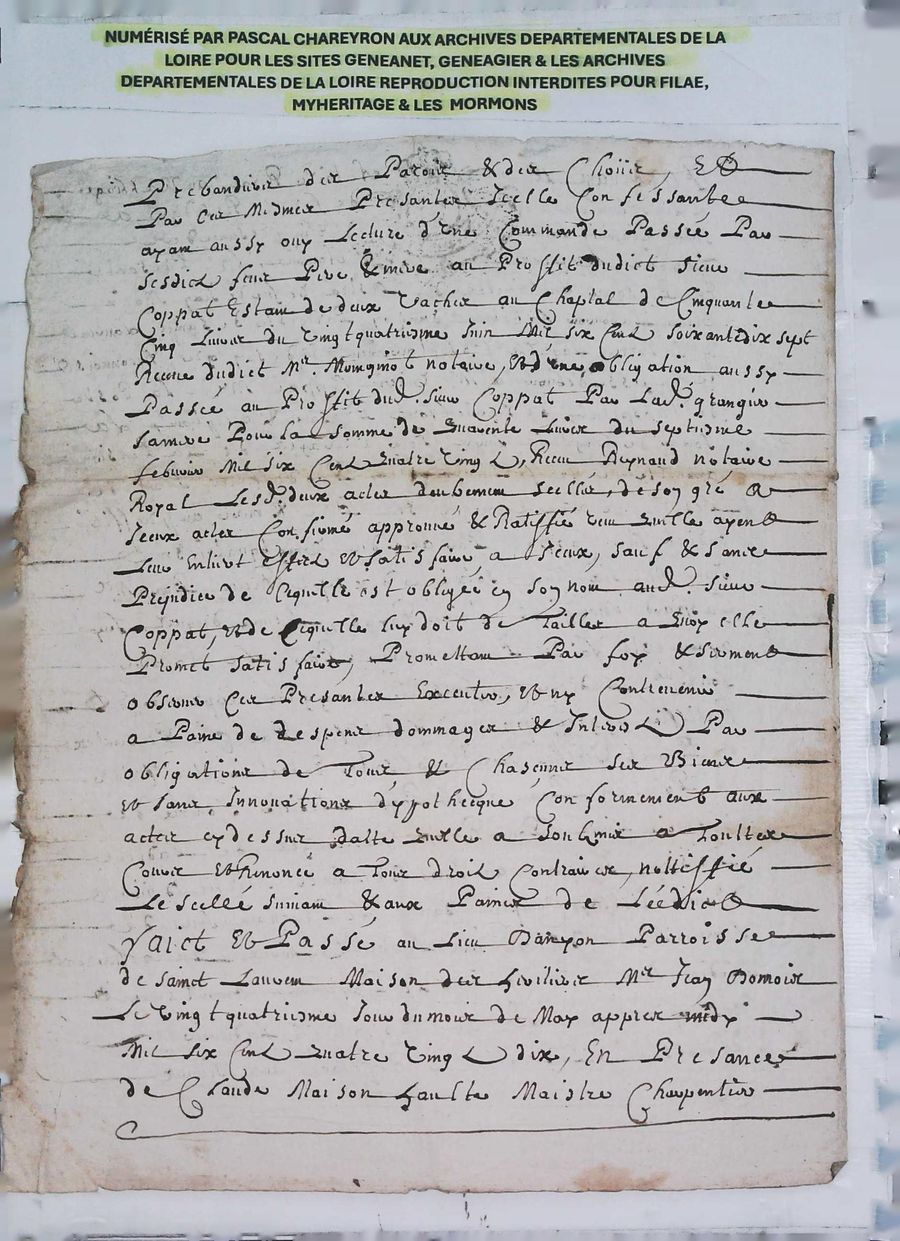 NUMÉRISÉ PAR PASCAL CHAREYRON AUX ARCHIVES DEPARTEMENTALES DE LA
LOIRE POUR LES SITES GENEANET, GENEAGIER & LES ARCHIVES
DEPARTEMENTALES DE LA LOIRE REPRODUCTION INTERDITES POUR FILAE,
MYHERITAGE & LES MORMONS
des Parois & des Et
Par ces Mesmes Presantes Icelle Confessante
ayant aussy ouy Lecture d'une Commande Passée Par
sesdict feux Pere & mere au Proffit dudict sieur
Coppat Estam de deux vaches au Cheptal de Cinquante
Cinq Livres du vingtquatriesme Juin Mil six Cent soixantedix sept
Receue dudict Mr. notaire, Et d'une obligation aussy
Passée au Proffit dud. sieur Coppat Par lad. grangier
sa mere Pour la somme de quarente Livres du septiesme
febvrier Mil six Cent quatre vingt, Receu Reynaud notaire
Royal Lesd. deux actes deubement scellés, de son gré a
Iceux actes Confirmé approuvé & Ratiffié veut quille ayent
Leur Entiert Effect Et satisfaire a Iceux, sauf & sans
Prejudice de Cequelle est obligée en son nom aud. sieur
Coppat, et de Cequelle luy doit de Tailles a quoy elle
Promet satisfaire, Promettant Par foy & serment
observer Ces Presantes Executer, Et ny Contrevenir
a Paine de despens dommages & Interest Par
obligations de Tous & Chascuns ses Biens
et sans Innovations d'ypothecque Conformement aux
actes cydessus datte quille a soubmis a Toultes
Cours Et Renoncé a Tous droit Contraires, nottiffié
Le scellé suivant & aux Paines de Lédict
faict Et Passé au Lieu Parroisse
de sainct Laurent Maison des heritiers Mre Jean
Le vingtquatriesme Jour du mois de May appres midy
Mil six Cent quatre vingt dix, En Presance
de Claude Maison haulte Maistre Charpentier